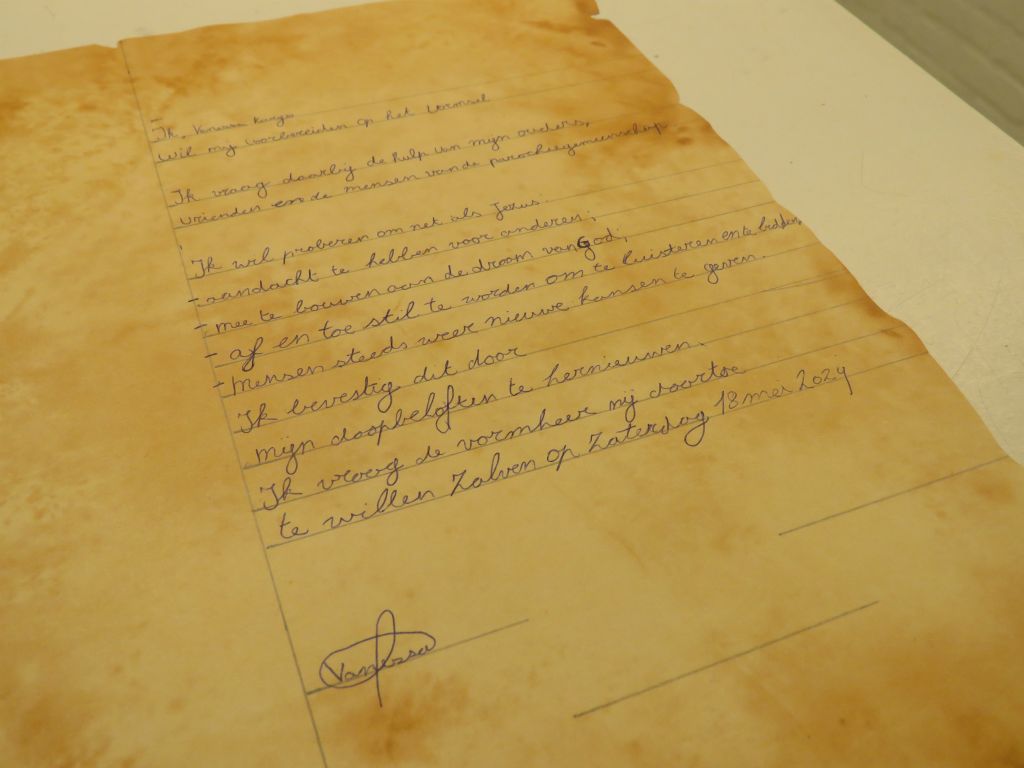 Ik, Vanessa
wil mij voorbereiden op het vormsel
Ik vraag daarbij de hulp van mijn ouders,
vrienden en de mensen van de parochiegemeenschap
Ik wil proberen om net als Jezus:
- aandacht te hebben voor anderen;
- mee te bouwen aan de droom van God;
- af en toe stil te worden om te luisteren en te bidden;
- mensen steeds weer nieuwe kansen te geven.
Ik bevestig dit door
mijn doopbeloften te hernieuwen.
Ik vraag de vormheer mij daartoe
te willen zalven op zaterdag 18 mei 2024
Vanessa